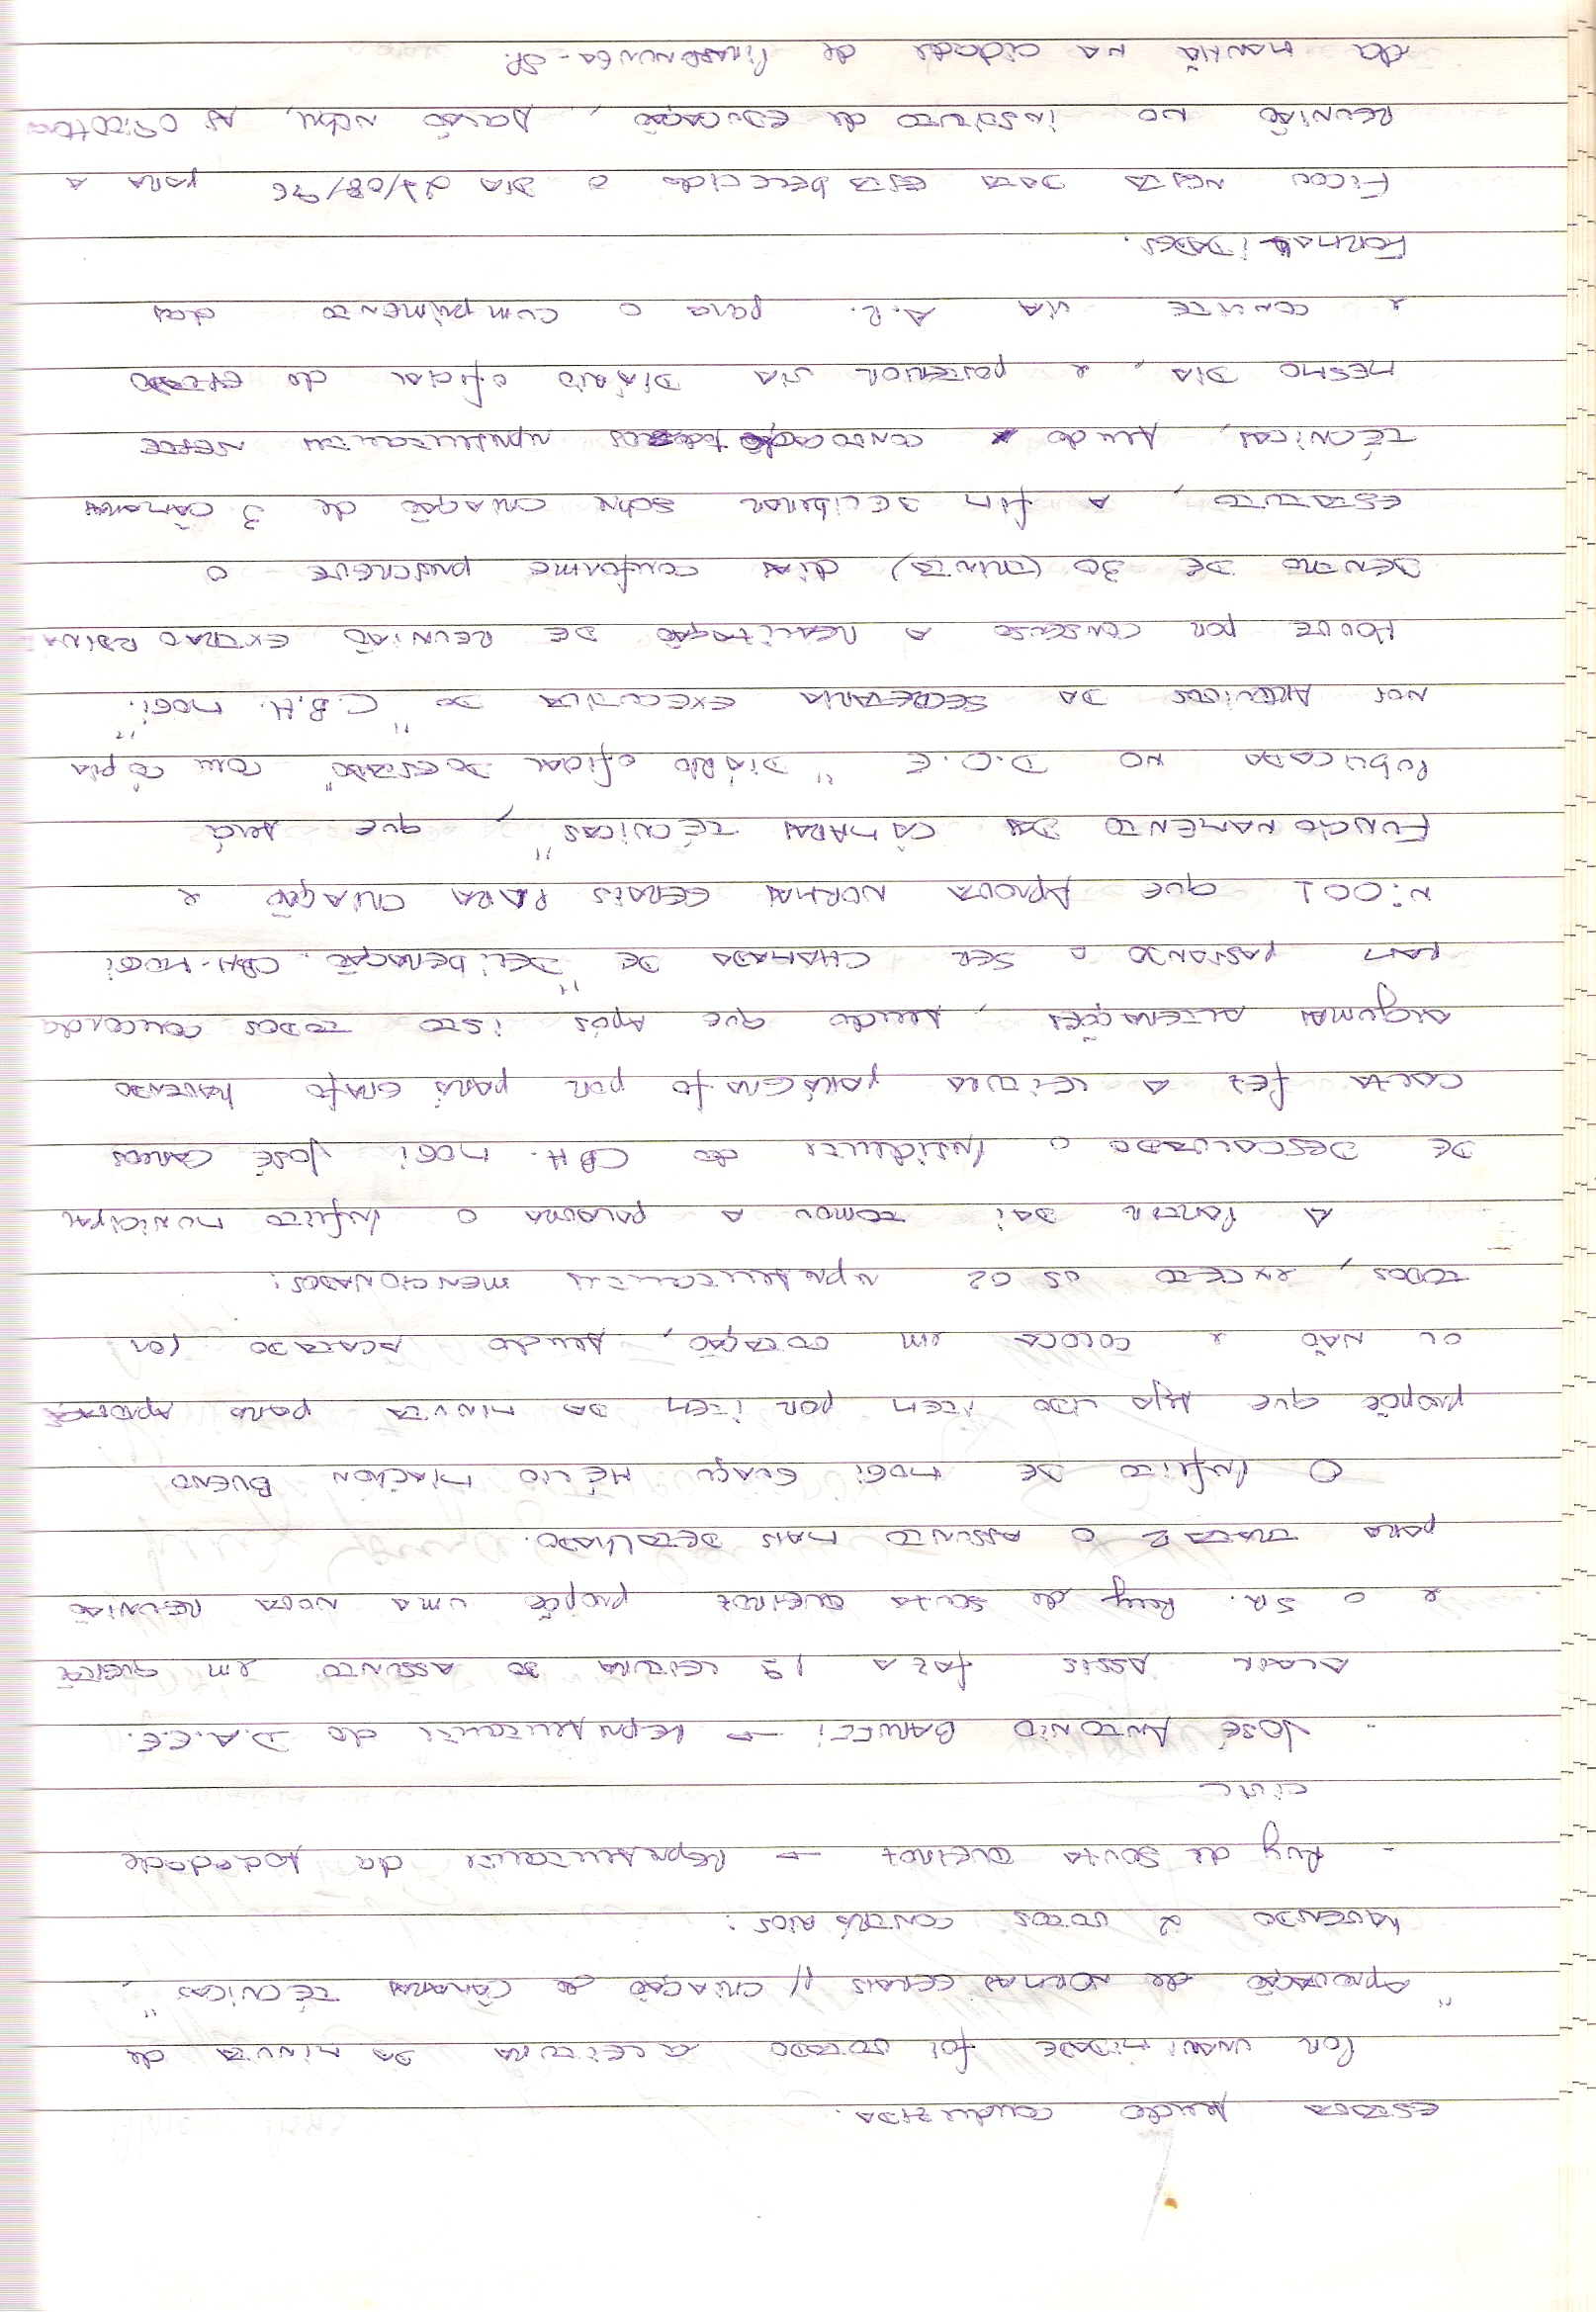 ESTAVA sendo conduzida.
Por unanimidade foi votado a leitura da minuta de
"Aprovação de normas gerais p/ criação de câmaras técnicas",
havendo 2 votos contrários:
- Ruy de Souza Queiroz → Representante da sociedade
civil
- José Antonio Barufi → Representante do D.A.E.E.
Alair Assis faz a 1ª leitura do assunto em questã
e o Sr. Ruy de Souza Queiroz propõe uma nova reunião
para tratar o assunto mais detalhado.
O Prefeito de Mogi Guaçu Hélio Miachon Bueno
propõe que seja lido item por item da minuta para
ou não e coloca em votação, sendo acatado por
todos, exceto os 02 representantes mencionados:
A partir daí tomou a palavra o Prefeito Municipal
de Descalvado o Presidente do CBH. Mogi José Carlos
fez a leitura parágrafo por parágrafo havendo
algumas alterações, sendo que após isto todos concorda
ram passando a ser chamada de "Deliberação. CBH-Mogi
n: 001 que Aprova normas gerais para criação e
Funcionamento das câmaras técnicas", que será
Publicada no D.O.E "Diário oficial do estado" com cópia
nos arquivos da secretaria executiva do "C.B.H. Mogi".
Houve por consenso a realização de reunião extraordina
dentro de 30 (trinta) dias conforme prescreve o
estatuto, a fim deliberar sobre criação de 3 câmaras
técnicas, sendo convocação representantes neste
mesmo dia, e posterior via diário oficial do estado
e convite via A.R. para o cumprimento das
Formalidades.
Ficou nesta data estabelecido o dia 27/08/96 para a
reunião no instituto de educação, salão nobre, as 09:00
da manhã na cidade de Pirassununga-SP.